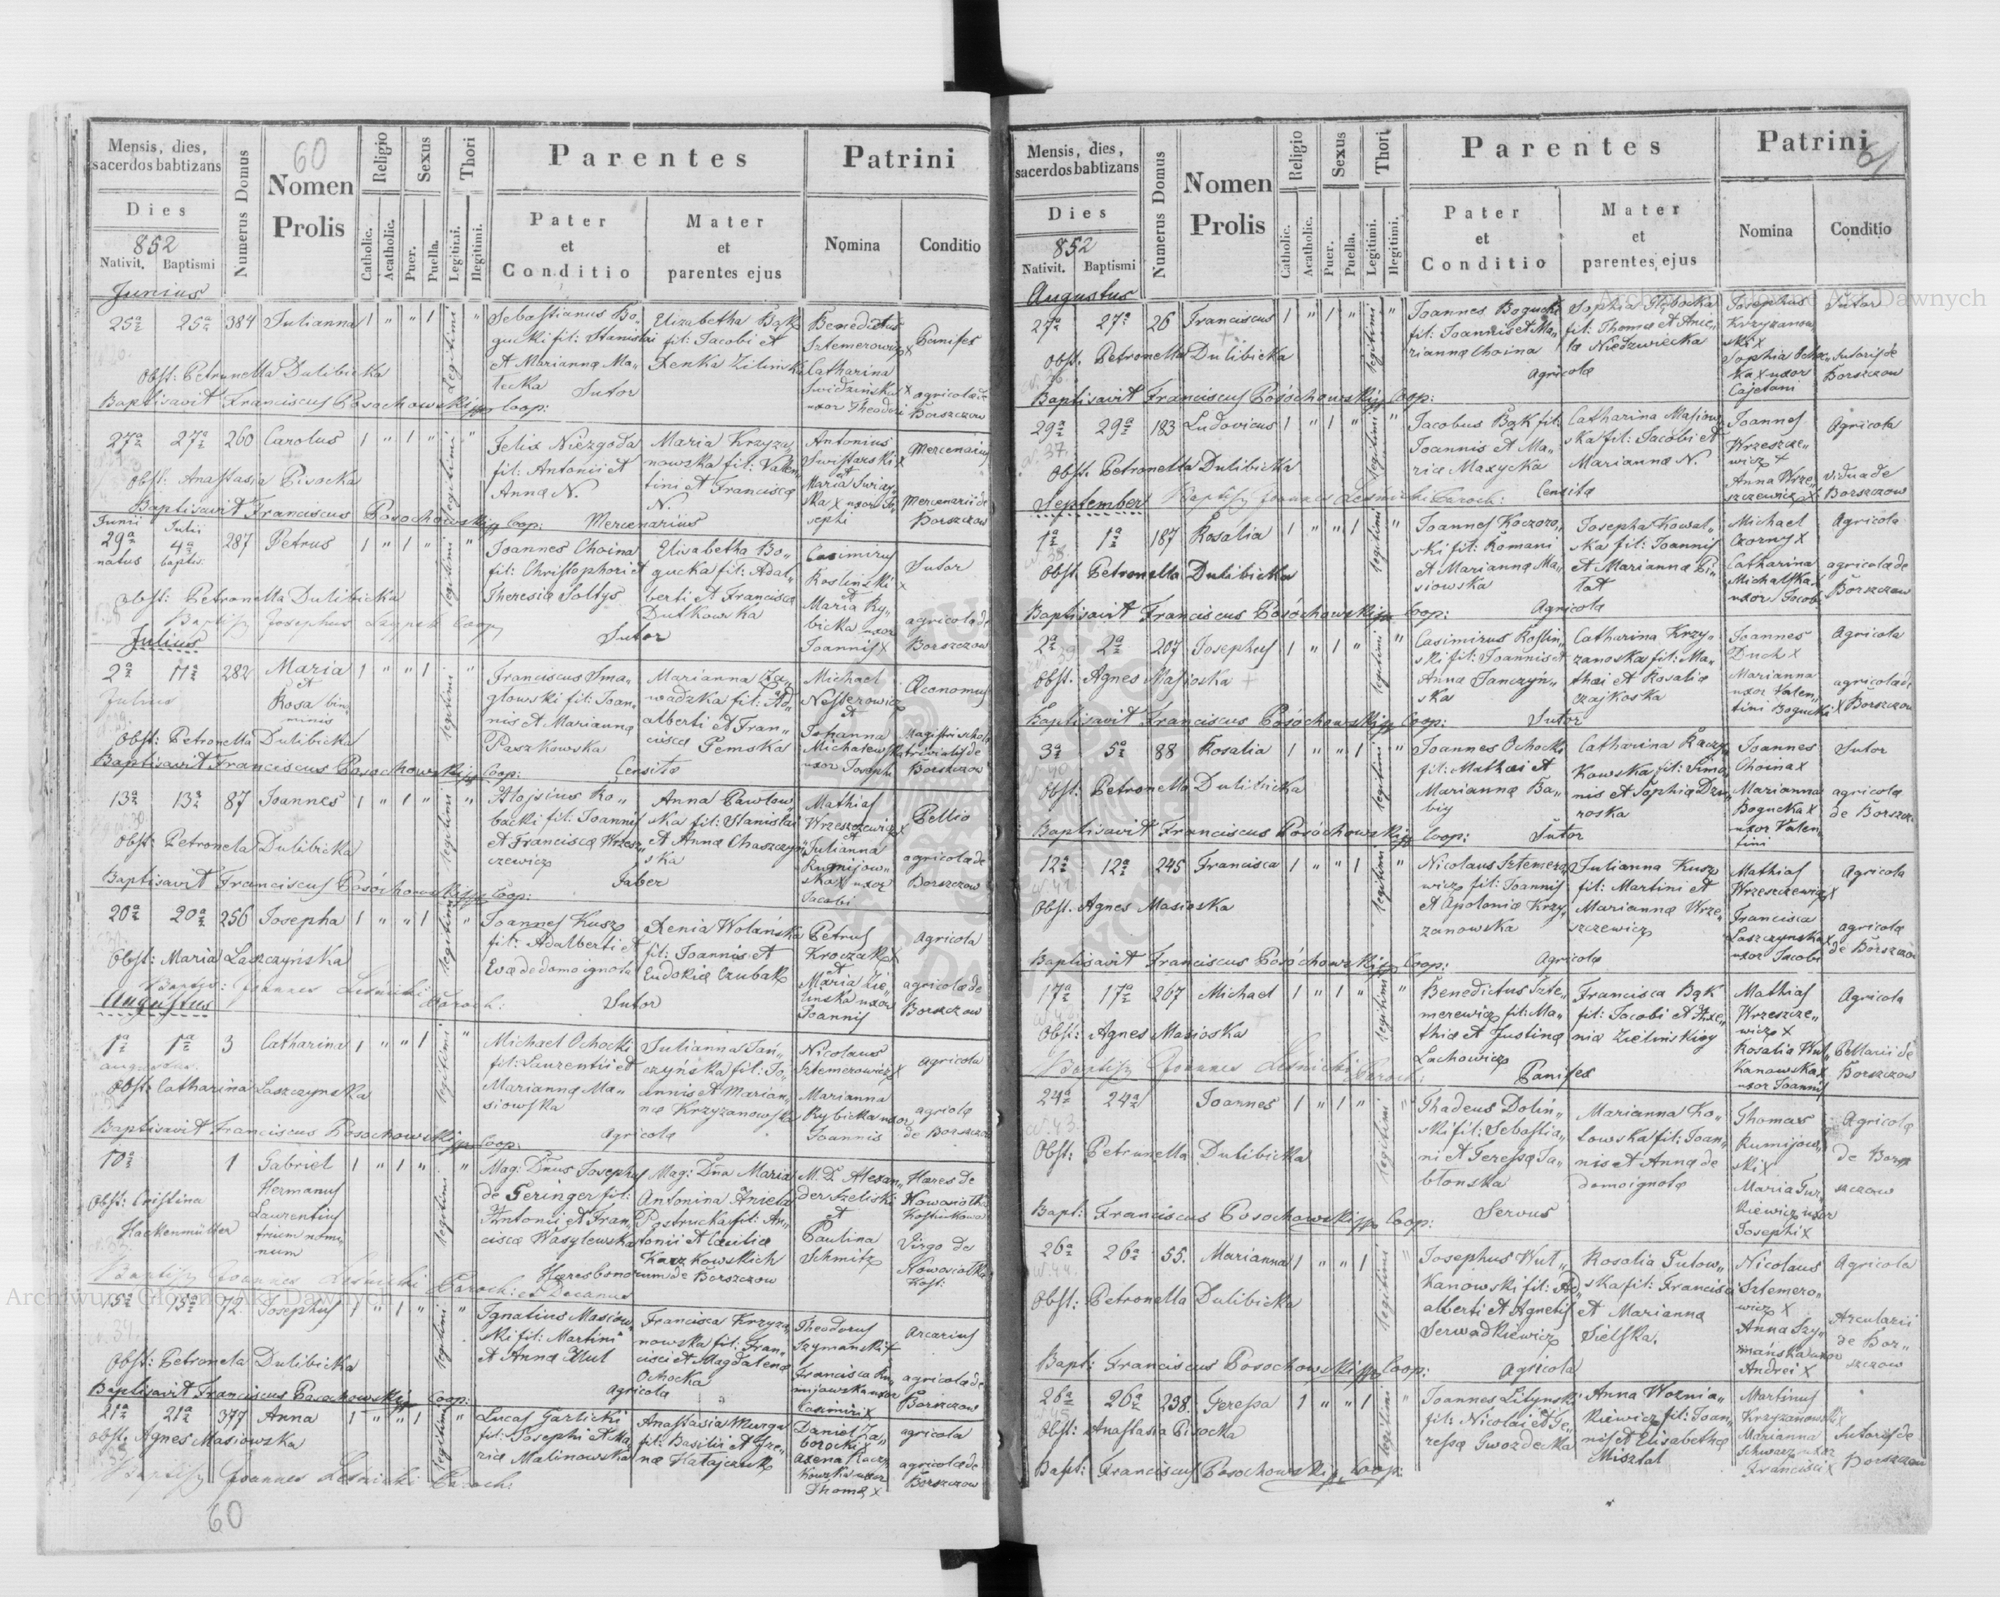 60
Mensis, dies,
sacerdos babtizans
Numerus Domus
Nomen
Prolis
Religio
Sexus
Thori
Parentes
Patrini
Dies
852
Nativit. Baptismi
Catholic.
Acatholic.
Puer.
Puella.
Legitimi.
Ilegitimi.
Pater
et
Conditio
Mater
et
parentes ejus
Nomina
Conditio
Junius
25a 25a 384 Julianna 1 " " 1 legitimi "
Sebastianus Bo-
gucki fil: Stanislai
et Marianna Ma-
tecka
Sutor
Elizabetha Bąk
fil: Jacobi et
Xenka Zilinska
Benedictus
Sztemerowicz x
Catharina
uxor Theodori
Panifex
agricola de
Borszczow
Obst: Petronella Dulibicka
Baptisavit Franciscus Posochowski Coop:
27a 27a 260 Carolus 1 " 1 " legitimi "
Felix Niezgoda
fil: Antonii et
Anna N.
Maria Krzyza-
nowska fil: Valen-
tini et Francisca
N.
Mercenarius
Antonius
Swistarski x
et
Mercenarius
Mercenarii de
Borszczow
Obst: Anastasia Pisocka
Baptisavit Franciscus Posochowski Coop:
Junii Julii
29a 4a 287 Petrus 1 " 1 " legitimi "
natus baptis:
Joannes Choina
fil: Christophori et
Theresia Soltys
Elisabetha Bo-
gucka fil: Adal-
berti et Francisca
Dutkowska
Sutor
Casimirus
Koslinski x
et
Maria Ry-
bicka uxor
Joannis x
Sutor
agricola de
Borszczow
Obst: Petronella Dulibicka
Julius
2a 17a 282 Maria 1 " " 1 legitimi "
Julius
et
Rosa bin-
minis
Franciscus Sma-
glowski fil: Joan-
nis et Marianna
Paszkowska
Marianna Za-
wadzka fil: Ad-
alberti et Fran-
cisca Pemska
Censita
Michael
Nesterowicz
et
Johanna
Michalewska
uxor Josephi
Œconomus
Magistri schola
trivialis de
Borszczow
Obst: Petronella Dulibicka
Baptisavit Franciscus Posochowski Coop:
13a 13a 87 Joannes 1 " 1 " legitimi "
Alojsius Ro-
backi fil: Joannis
et Francisca Wrzesz-
czewicz
Anna Pawlow-
ska fil: Stanislai
et Anna Chaszczyn-
ska
Faber
Mathias
Wrzeszczewicz x
et
Julianna
Rumijow-
ska x uxor
Jacobi
Pellio
agricola de
Borszczow
Obst: Petronela Dulibicka
Baptisavit Franciscus Posóchowski Coop:
20a 20a 256 Josepha 1 " " 1 legitimi "
Joannes Kusz
fil: Adalberti et
Eva de domo ignota
Xenia Wolańska
fil: Joannis et
Eudokia Czubak
Sutor
Petrus
Kroczak x
et
Maria Zie-
linska uxor
Joannis
Agricola
agricola de
Borszczow
Obst: Maria Laszczyńska
Baptis: Joannes Leśnicki Paroch:
Augustus
1a 1a 3 Catharina 1 " " 1 legitimi "
Michael Ochocki
fil: Laurentii et
Marianna Ma-
siowska
Julianna Jań-
czyńska fil: Jo-
annis et Marian-
na Krzyzanowska
Agricola
Nicolaus
Sztemerowicz x
Marianna
Rybicka uxor
Joannis
agricola
agricola
de Borszczow
Obst: Catharina Laszczynska
Baptisavit Franciscus Posochowski Coop:
10a 1 Gabriel 1 " 1 " legitimi "
Hermanus
Laurentius
trium nomi-
num
Mag: Dnus Josephus
de Geringer fil:
Antonii et Fran-
cisca Wasylewska
Mag: Dna Maria
Antonina Aniela
Postrucka fil: An-
tonii et Cacilia
Karzkowskich
Hæres bonorum de Borszczow
M. D. Alexan-
der Szeliski
et
Paulina
Schmitz
Hæres de
Nowosiołka
Kostiukowa
Virgo de
Nowosiołka
Kost:
Obst: Cristina
Hackenmüller
Baptis: Joannes Leśnicki Paroch: et Decanus
15a 15a 72 Josephus 1 " 1 " legitimi "
Ignatius Masiow-
ski fil: Martini
et Anna Hul
Francisca Krzyza-
nowska fil: Fran-
cisci et Magdalena
Ochocka
Agricola
Theodorus
Szymanski x
Francisca Ru-
mijowska uxor
Casimiri x
Arcarius
agricola de
Borszczow
Obst: Petronela Dulibicka
Baptisavit Franciscus Posochowski Coop:
21a 21a 377 Anna 1 " " 1 legitimi "
Lucas Garlicki
fil: Josephi et Ma-
ria Malinowska
Anastasia Murga
fil: Basilii et Ire-
na Hatajczuk
Daniel Za-
borocki x
Axena Kacz-
kowska uxor
Thoma x
agricola
agricola de
Borszczow
Obst: Agnes Masiowska
Baptis: Joannes Leśnicki Paroch:
60
61
Mensis, dies,
sacerdos babtizans
Numerus Domus
Nomen
Prolis
Religio
Sexus
Thori
Parentes
Patrini
Dies
852
Nativit. Baptismi
Catholic.
Acatholic.
Puer.
Puella.
Legitimi.
Ilegitimi.
Pater
et
Conditio
Mater
et
parentes ejus
Nomina
Conditio
Augustus
27a 27a 26 Franciscus 1 " 1 " legitimi "
Joannes Bogucki
fil: Joannis et Ma-
rianna Choina
Sophia Głębocka
fil: Thoma et Anie-
la Niedzwiecka
Agricola
Josephus
Krzyzanow-
ski x
Sophia Ocho-
cka x uxor
Cajetani
Sutor
Sutoris de
Borszczow
Obst: Petronella Dulibicka
Baptisavit Franciscus Posóchowski Coop:
29a 29a 183 Ludovicus 1 " 1 " legitimi "
Jacobus Bąk fil:
Joannis et Ma-
ria Maxycka
Catharina Masiow-
ska fil: Jacobi et
Marianna N.
Censita
Joannes
Wrzeszcze-
wicz x
Anna Wrze-
szczewicz x
Agricola
vidua de
Borszczow
Obst: Petronella Dulibicka
September
Baptis: Joannes Leśnicki Paroch:
1a 1a 187 Rosalia 1 " " 1 legitimi "
Joannes Koczoro-
ski fil: Romani
et Marianna Ma-
siowska
Josepha Kowal-
ska fil: Joannis
et Marianna Pi-
tat
Agricola
Michael
Czorny x
Catharina
Michalska
uxor Jacobi
Agricola
agricola de
Borszczow
Obst: Petronella Dulibicka
Baptisavit Franciscus Posóchowski Coop:
2a 2a 207 Josephus 1 " 1 " legitimi "
Casimirus Koslin-
ski fil: Joannis et
Anna Janczyń-
ska
Catharina Krzy-
zanoska fil: Ma-
thai et Rosalia
Czajkoska
Sutor
Joannes
Duch x
Marianna
uxor Valen-
tini Bogucki x
Agricola
agricola de
Borszczow
Obst: Agnes Masioska
Baptisavit Franciscus Posóchowski Coop:
3a 5a 88 Rosalia 1 " " 1 legitimi "
Joannes Ochocki
fil: Mathai et
Marianna Ba-
biy
Catharina Kacz-
kowska fil: Simo-
nis et Sophia Dzu-
roska
Sutor
Joannes
Choina x
Marianna
Bogucka x
uxor Valen-
tini
Sutor
agricola
de Borszcz:
Obst: Petronella Dulibicka
Baptisavit Franciscus Posóchowski Coop:
12a 12a 245 Francisca 1 " " 1 legitimi "
Nicolaus Sztemero-
wicz fil: Joannis
et Apolonia Krzy-
zanowska
Julianna Kusz
fil: Martini et
Marianna Wrze-
szczewicz
Agricola
Mathias
Wrzeszczewicz x
Francisca
Laszczynska x
uxor Jacobi
Agricola
agricola
de Borszczow
Obst. Agnes Masioska
Baptisavit Franciscus Posóchowski Coop:
17a 17a 267 Michael 1 " 1 " legitimi "
Benedictus Szte-
merewicz fil: Ma-
thia et Justina
Lachowicz
Francisca Bąk
fil: Jacobi et Axe-
nia Zielinskiey
Panifex
Mathias
Wrzeszcze-
wicz x
Rosalia Wut-
kanowska x
uxor Joannis
Agricola
Pellarii de
Borszczow
Obst: Agnes Masioska
Baptis: Joannes Leśnicki Paroch:
24a 24a Joannes 1 " 1 " legitimi "
Thadeus Doliń-
ski fil: Sebastia-
ni et Teressa Ja-
blonska
Marianna Ko-
lowska fil: Joan-
nis et Anna de
domo ignota
Servus
Thomas
Rumijow-
ski x
Maria Tur-
kiewicz uxor
Josephi x
Agricola
de Bor-
szczow
Obst: Petronella Dulibicka
Bapt: Franciscus Posochowski Coop:
26a 26a 55. Marianna 1 " " 1 legitimi "
Josephus Wut-
kanowski fil: Ad-
alberti et Agnetis
Serwadkiewicz
Rosalia Gutow-
ska fil: Francisci
et Marianna
Sielska.
Agricola
Nicolaus
Sztemero-
wicz x
Anna Szy-
mańska uxor
Andrei x
Agricola
Arcularii
de Bor-
szczow
Obst: Petronella Dulibicka
Bapt: Franciscus Posochowski Coop:
26a 26a 238. Teressa 1 " " 1 legitimi "
Joannes Litynski
fil: Nicolai et Te-
ressa Gwozdecka
Anna Woznia-
kiewicz fil: Joan-
nis et Elisabetha
Misztal
Martinus
Krzyzanowski x
Marianna
Schwarz uxor
Francisci x
Sutoris de
Borszczow
Obst: Anastasia Pisocka
Bapt: Franciscus Posochowski, Coop:
Archiwum Główne Akt Dawnych
Archiwum Główne Akt Dawnych